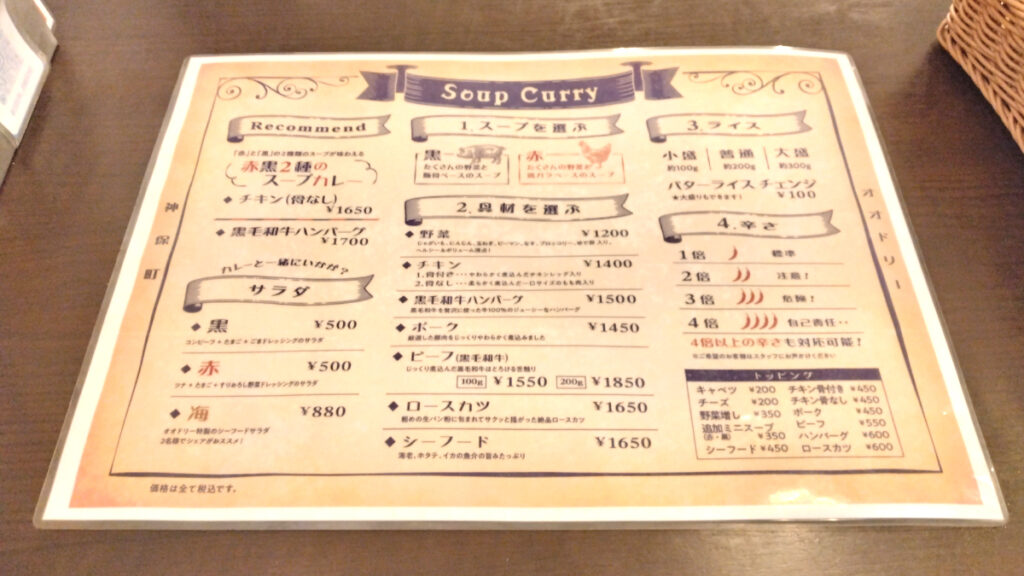 Soup Curry
Recommend
「赤」と「黒」の2種類のスープが味わえる
赤黒2種の
スープカレー
◆ チキン(骨なし)
¥1650
◆ 黒毛和牛ハンバーグ
¥1700
カレーと一緒にいかが?
サラダ
◆ 黒 ¥500
コンビーフ + たまご + ごまドレッシングのサラダ
◆ 赤 ¥500
ツナ + たまご + すりおろし野菜ドレッシングのサラダ
◆ 海 ¥880
オオドリー特製のシーフードサラダ
2名様でシェアがおススメ!
1.スープを選ぶ
黒
たくさんの野菜と
豚骨ベースのスープ
赤
たくさんの野菜と
鶏ガラベースのスープ
2.具材を選ぶ
◆ 野菜 ¥1200
じゃがいも、にんじん、玉ねぎ、ピーマン、なす、ブロッコリー、ゆで卵入り、
ヘルシー&ボリューム満点!
◆ チキン ¥1400
1.骨付き・・・やわらかく煮込んだチキンレッグ入り
2.骨なし・・・柔らかく煮込んだ一口サイズのもも肉入り
◆ 黒毛和牛ハンバーグ ¥1500
黒毛和牛を贅沢に使った牛100%のジューシーなハンバーグ
◆ ポーク ¥1450
厳選した豚肉をじっくりやわらかく煮込みました
◆ ビーフ(黒毛和牛)
じっくり煮込んだ黒毛和牛はとろける舌触り
100g ¥1550 200g ¥1850
◆ ロースカツ ¥1650
粗めの生パン粉に包まれてサクッと揚がった絶品ロースカツ
◆ シーフード ¥1650
海老、ホタテ、イカの魚介の旨みたっぷり
3.ライス
小盛 普通 大盛
約100g 約200g 約300g
バターライス チェンジ
★大盛りもできます! ¥100
4.辛さ
1倍 標準
2倍 注意!
3倍 危険!
4倍 自己責任・・
4倍以上の辛さも対応可能!
※ご希望のお客様はスタッフにお声かけください
トッピング
キャベツ ¥200 チキン骨付き ¥450
チーズ ¥200 チキン骨なし ¥450
野菜増し ¥350 ポーク ¥450
追加ミニスープ
(赤・黒) ¥350 ビーフ ¥550
ハンバーグ ¥600
シーフード ¥450 ロースカツ ¥600
神保町
オオドリー
価格は全て税込です。